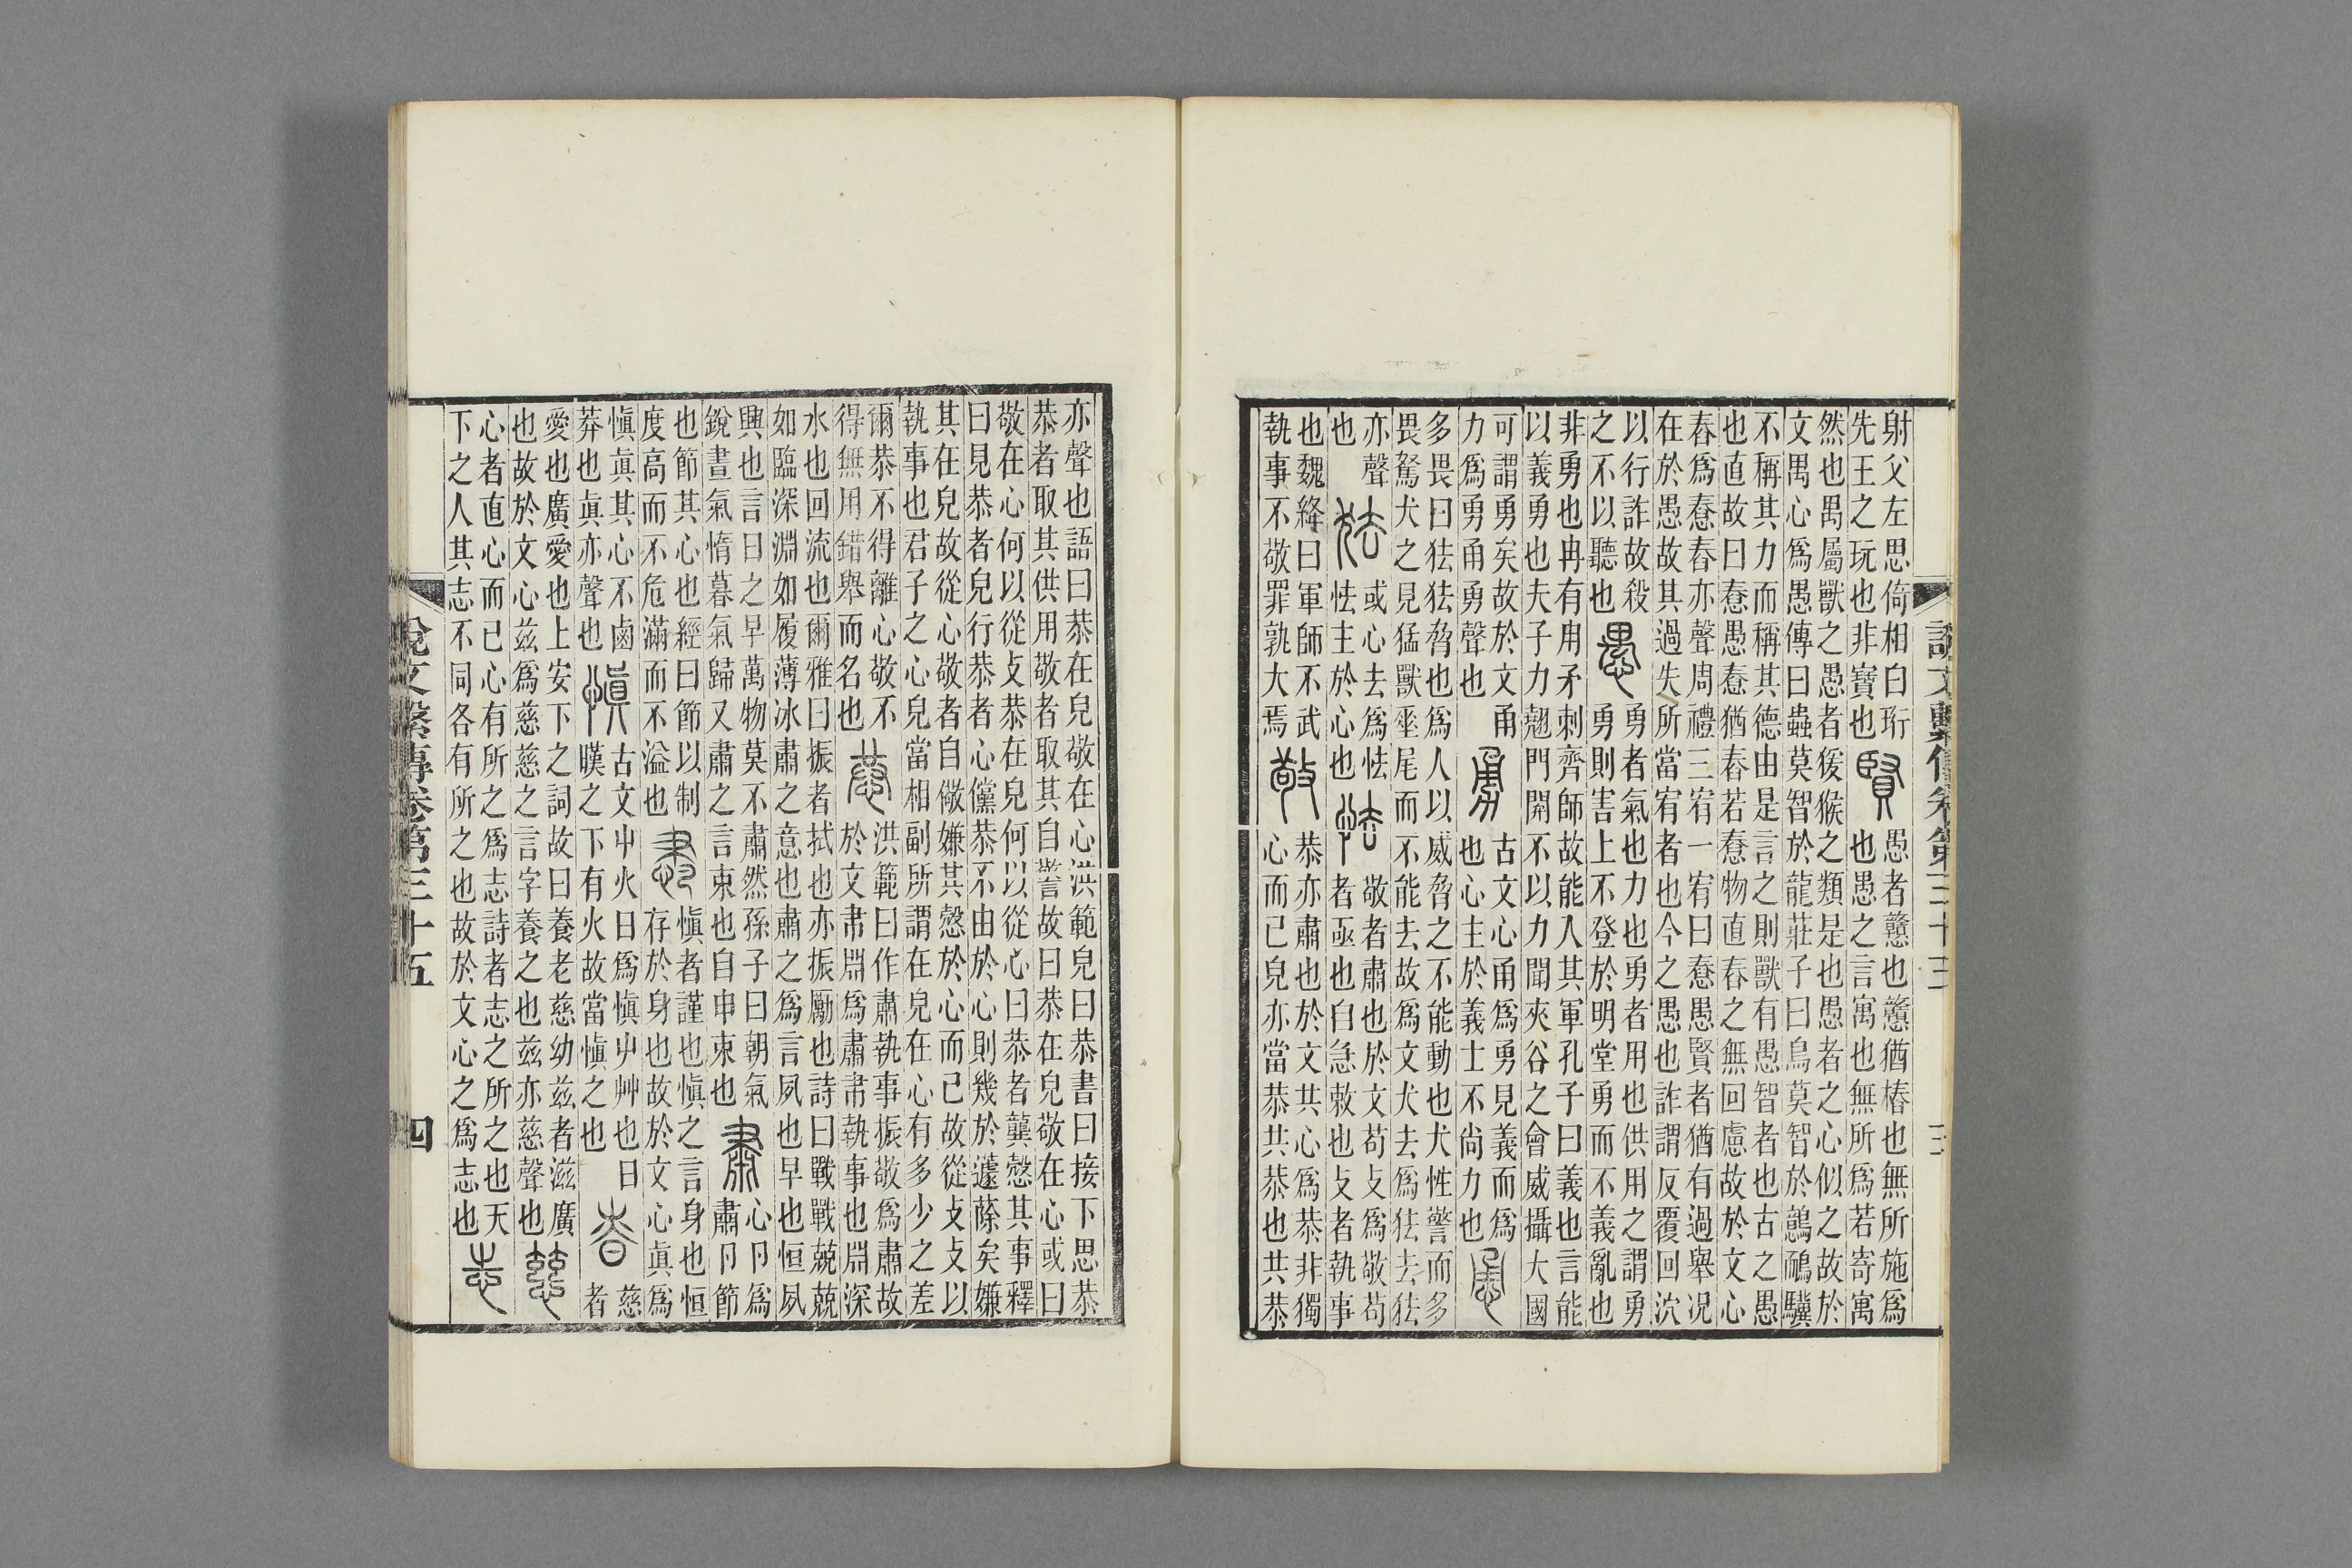 射父左思倚相白珩
先王之玩也非寶也
賢
愚者戇也戇猶樁也無所施爲
也愚之言寓也無所爲若寄寓
然也禺屬獸之愚者猨猴之類是也愚者之心似之故於
文禺心爲愚傳曰蟲莫智於龍莊子曰鳥莫智於鷾鴯驥
不稱其力而稱其德由是言之則獸有愚智者也古之愚
也直故曰惷愚惷猶舂若惷物直舂之無回慮故於文心
舂爲惷舂亦聲周禮三宥一宥曰惷愚賢者猶有過舉況
在於愚故其過失所當宥者也今之愚也詐謂反覆回泬
以行詐故殺
之不以聽也
愚
勇者氣也力也勇者用也供用之謂勇
勇則害上不登於明堂勇而不義亂也
非勇也冉有用矛刺齊師故能入其軍孔子曰義也言能
以義勇也夫子力翹門關不以力聞夾谷之會威攝大國
可謂勇矣故於文甬
力爲勇甬勇聲也
勇
古文心甬爲勇見義而爲
也心主於義士不尚力也
恿
多畏曰狜狜脅也爲人以威脅之不能動也犬性警而多
畏駑犬之見猛獸垂尾而不能去故爲文犬去爲狜去狜
亦聲
也
狜
或心去爲怯
怯主於心也
怯
敬者肅也於文苟攴爲敬苟
者亟也自急敕也攴者執事
也魏絳曰軍師不武
執事不敬罪孰大焉
敬
恭亦肅也於文共心爲恭非獨
心而已皃亦當恭共恭也共恭
說文繫傳卷第三十五
三
亦聲也語曰恭在皃敬在心洪範皃曰恭書曰接下思恭
恭者取其供用敬者取其自警故曰恭在皃敬在心或曰
敬在心何以從攴恭在皃何以從心曰恭者龔愨其事釋
曰見恭者皃行恭者心儻恭不由於心則幾於蘧蒢矣嫌
其在皃故從心敬者自儆嫌其愨於心而已故從攴攴以
執事也君子之心皃當相副所謂在皃在心有多少之差
爾恭不得離心敬不
得無用錯舉而名也
恭
洪範曰作肅執事振敬爲肅故
於文肀𣶒爲肅肀執事也𣶒深
水也回流也爾雅曰振者拭也亦振勵也詩曰戰戰兢兢
如臨深淵如履薄冰肅之意也肅之爲言夙也早也恒夙
興也言日之早萬物莫不肅然孫子曰朝氣
銳晝氣惰暮氣歸又肅之言束也自申束也
肅
心卪爲
肅卪節
也節其心也經曰節以制
度高而不危滿而不溢也
肅
愼者謹也愼之言身也恒
存於身也故於文心眞爲
愼眞其心不鹵
莽也眞亦聲也
愼
古文屮火日爲愼屮艸也日
暵之下有火故當愼之也
昚
慈
者
愛也廣愛也上安下之詞故曰養老慈幼兹者滋廣
也故於文心兹爲慈慈之言字養之也兹亦慈聲也
慈
心者直心而已心有所之爲志詩者志之所之也天
下之人其志不同各有所之也故於文心之爲志也
志
說文繫傳卷第三十五
四